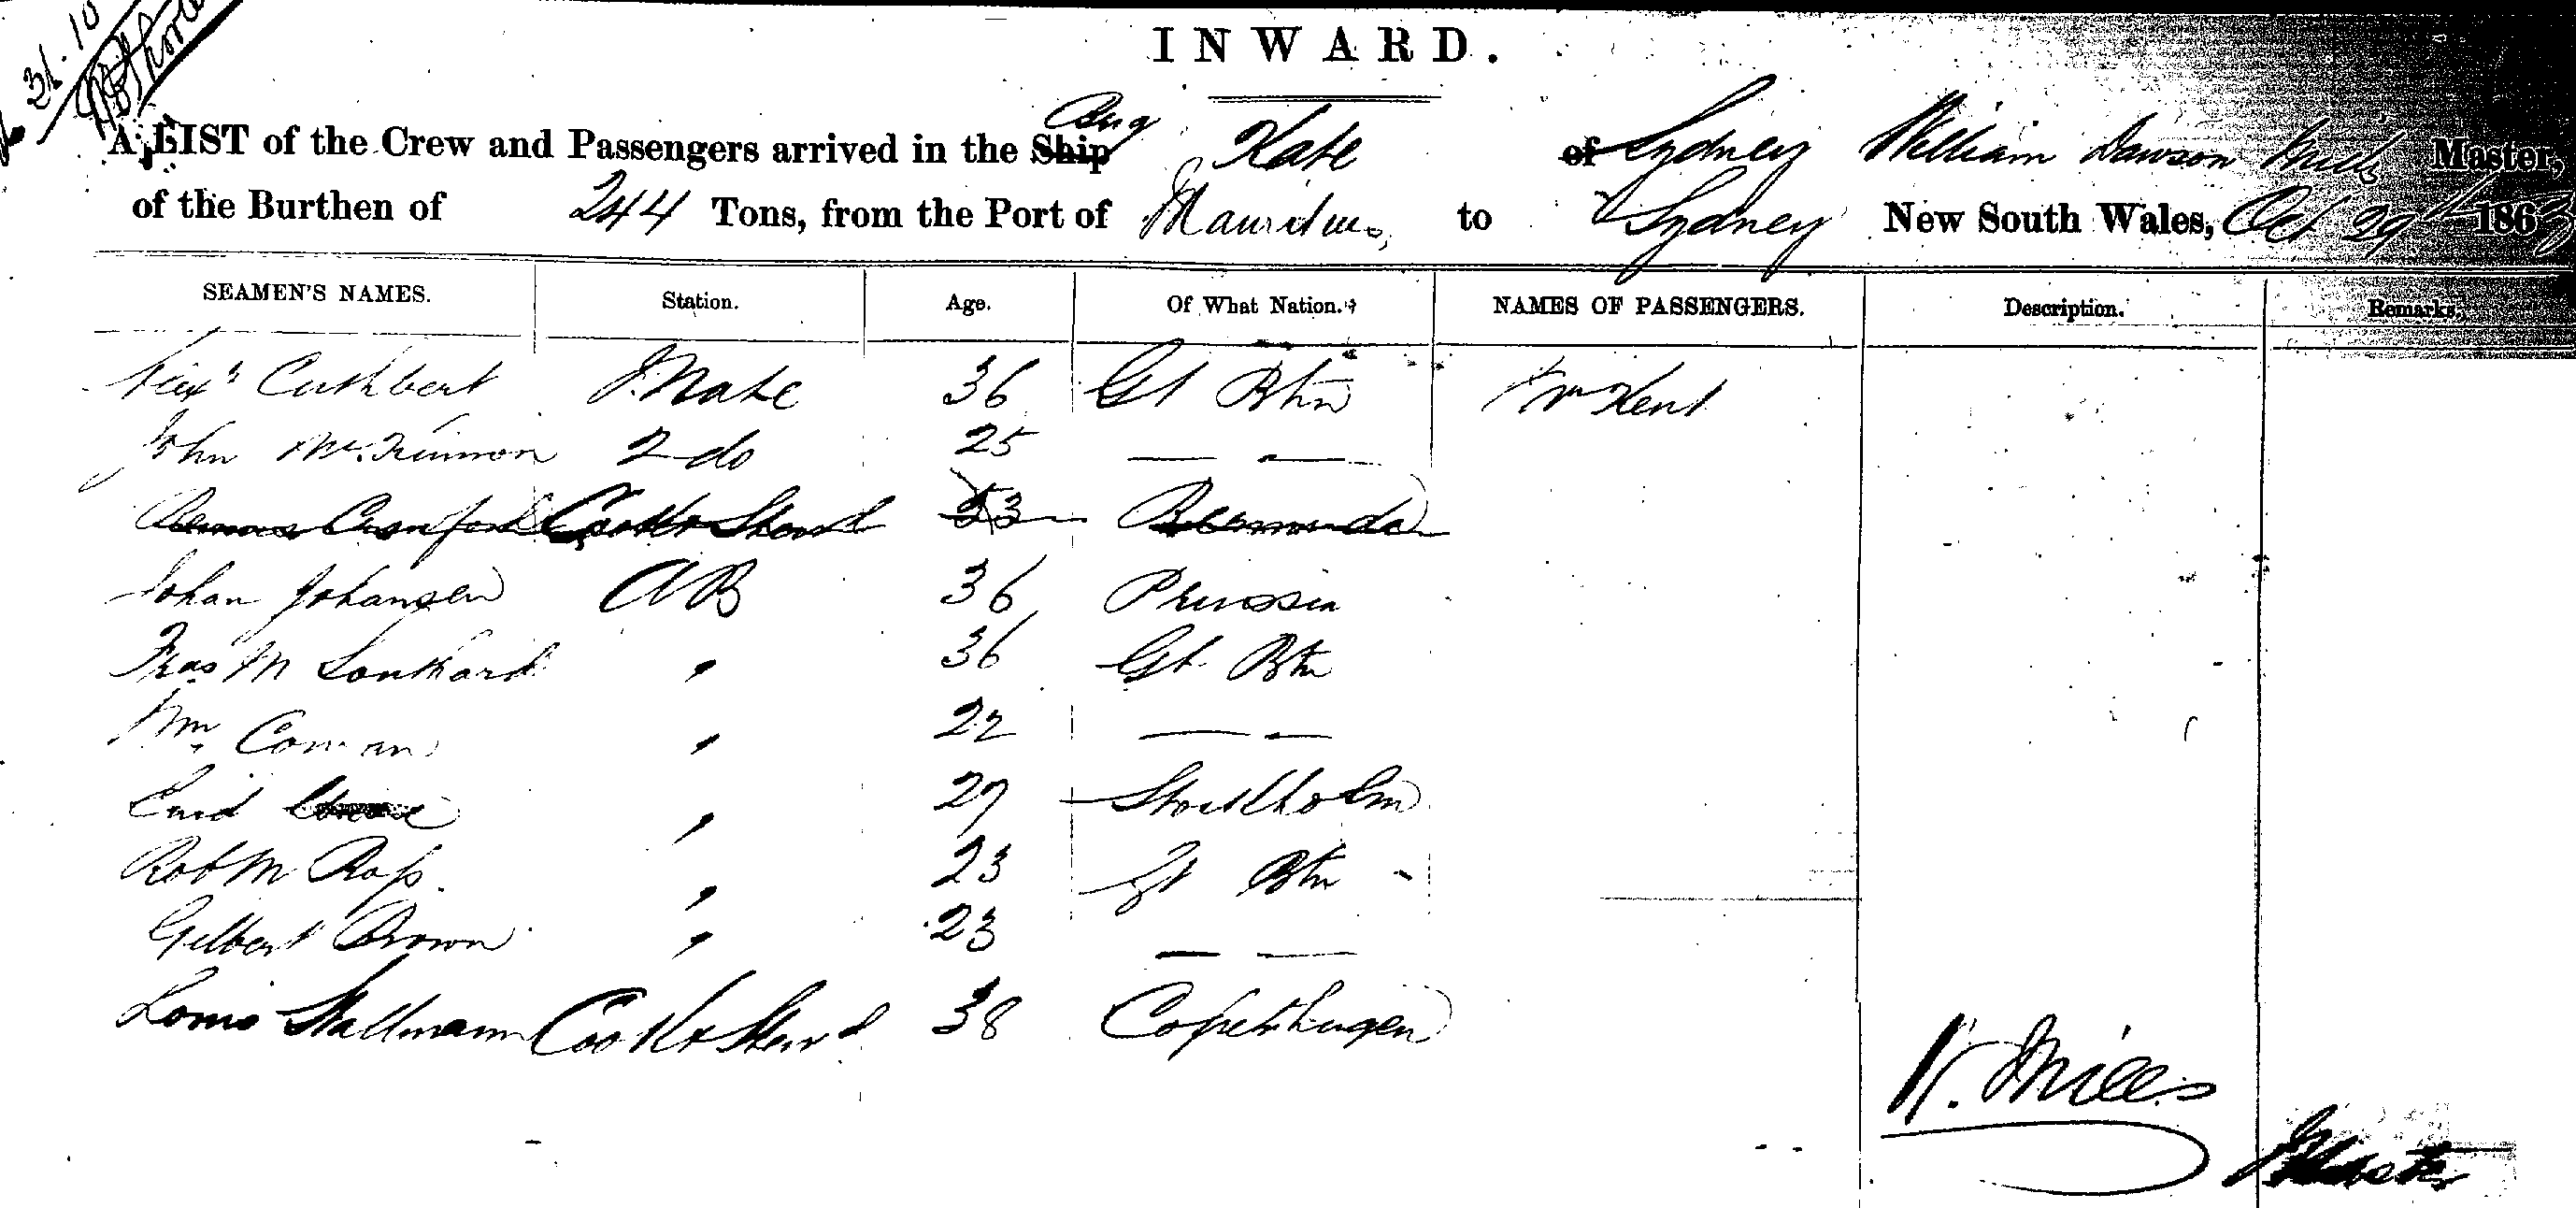 31.10
INWARD.
A LIST of the Crew and Passengers arrived in the Ship Brig Kate of Sydney William Dawson Mills Master,
of the Burthen of 244 Tons, from the Port of Mauritius, to Sydney New South Wales, Oct 29th 1863
SEAMEN'S NAMES. Station. Age. Of What Nation. NAMES OF PASSENGERS. Description. Remarks.
Alexr Cuthbert 1. Mate 36 Gt Btn Mr Kent
John McKinnon 2 do 25 — —
Cook & Stewd 53 Bermuda
Johan Johansen AB 36 Prussia
Fras M 36 Gt Btn
Wm 22 — —
27 Stockholm
Robt M Ross 23 Gt Btn
Gilbert Brown " 23 — —
Louis Stallmann Cook & Stewd 38 Copenhagen
W. Mills
Master